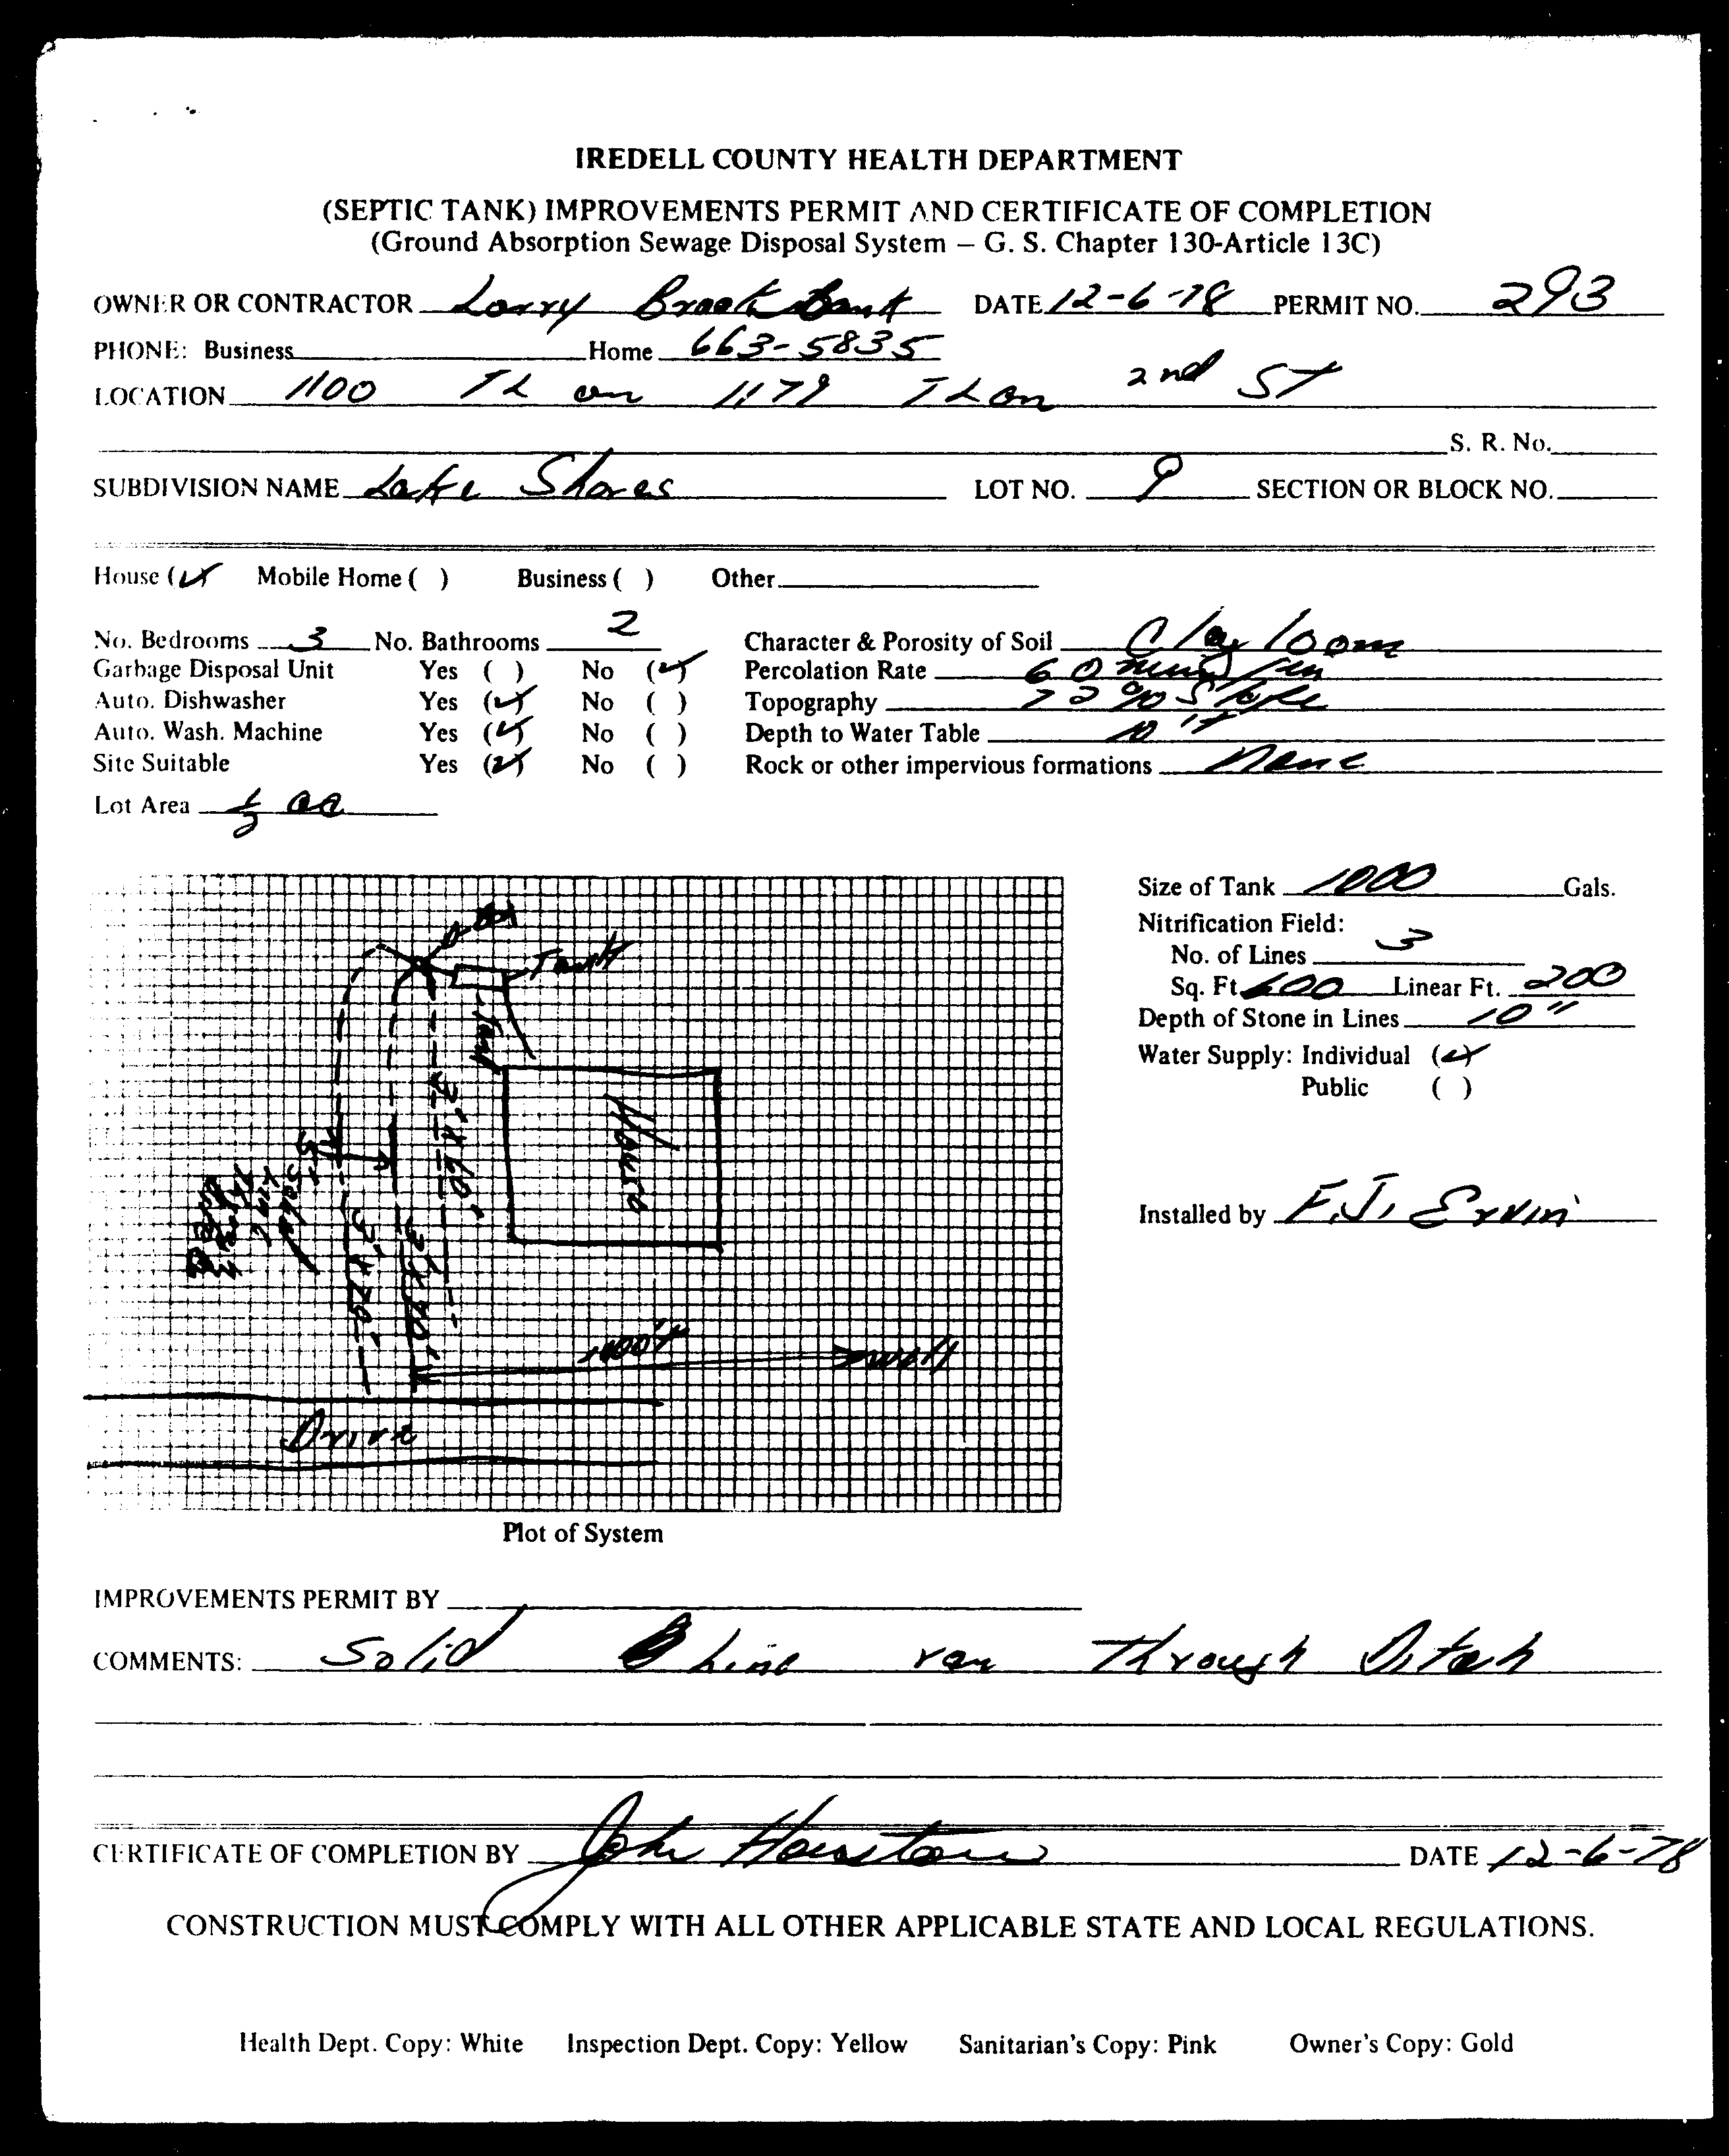 IREDELL COUNTY HEALTH DEPARTMENT
(SEPTIC TANK) IMPROVEMENTS PERMIT AND CERTIFICATE OF COMPLETION
(Ground Absorption Sewage Disposal System – G. S. Chapter 130-Article 13C)
OWNER OR CONTRACTOR Larry Brook Bank DATE 12-6-78 PERMIT NO. 293
PHONE: Business Home 663-5835
LOCATION 1100 TL on 1179 TL on 2nd ST
S. R. No.
SUBDIVISION NAME Lake Shores LOT NO. 9 SECTION OR BLOCK NO.
House (✓) Mobile Home ( ) Business ( ) Other
No. Bedrooms 3 No. Bathrooms 2 Character & Porosity of Soil Clay loam
Garbage Disposal Unit Yes ( ) No (✓) Percolation Rate 60 min/in
Auto. Dishwasher Yes (✓) No ( ) Topography % Slope
Auto. Wash. Machine Yes (✓) No ( ) Depth to Water Table 10 ft
Site Suitable Yes (✓) No ( ) Rock or other impervious formations None
Lot Area 1/2 ac
Size of Tank 1000 Gals.
Nitrification Field:
No. of Lines 3
Sq. Ft 600 Linear Ft. 200
Depth of Stone in Lines 10"
Water Supply: Individual (✓)
Public ( )
Installed by F.J. Ervin
Tank
Tank
House
3' x 60'
3' x 70'
5' Solid
Line
Through
100' +
Well
Drive
Plot of System
IMPROVEMENTS PERMIT BY
COMMENTS: Solid Line ran Through Ditch
CERTIFICATE OF COMPLETION BY John Houston DATE 12-6-78
CONSTRUCTION MUST COMPLY WITH ALL OTHER APPLICABLE STATE AND LOCAL REGULATIONS.
Health Dept. Copy: White Inspection Dept. Copy: Yellow Sanitarian's Copy: Pink Owner's Copy: Gold